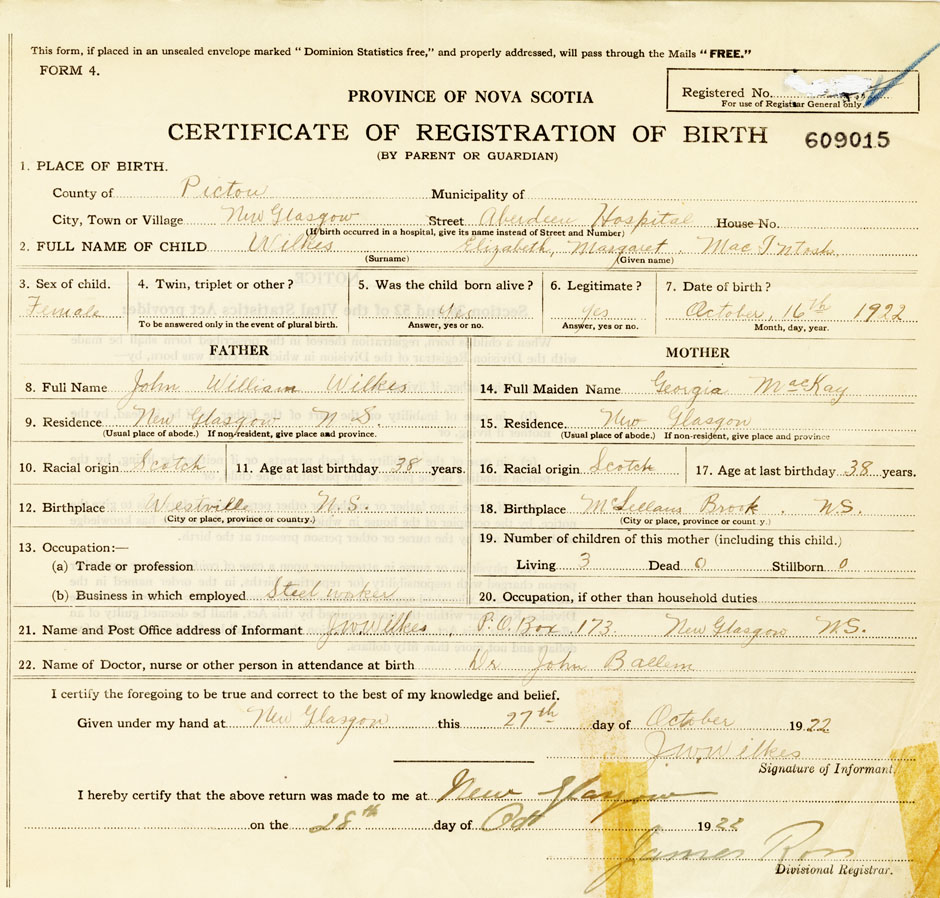 This form, if placed in an unsealed envelope marked “ Dominion Statistics free,” and properly addressed, will pass through the Mails “ FREE.”
FORM 4.
Registered No.
For use of Registrar General only.
PROVINCE OF NOVA SCOTIA
CERTIFICATE OF REGISTRATION OF BIRTH
609015
(BY PARENT OR GUARDIAN)
1. PLACE OF BIRTH.
County of Pictou Municipality of
City, Town or Village New Glasgow Street Aberdeen Hospital House No.
(If birth occurred in a hospital, give its name instead of Street and Number)
2. FULL NAME OF CHILD Wilkes Elizabeth, Margaret. Mac Intosh
(Surname) (Given name)
3. Sex of child. 4. Twin, triplet or other? 5. Was the child born alive? 6. Legitimate? 7. Date of birth?
Female Yes Yes October, 16th 1922
To be answered only in the event of plural birth. Answer, yes or no. Answer, yes or no. Month, day, year.
FATHER
8. Full Name John William Wilkes
9. Residence New Glasgow N.S.
(Usual place of abode.) If non-resident, give place and province.
10. Racial origin Scotch 11. Age at last birthday 38 years.
12. Birthplace Westville N.S.
(City or place, province or country.)
13. Occupation:—
(a) Trade or profession
(b) Business in which employed Steel worker
MOTHER
14. Full Maiden Name Georgia MacKay
15. Residence New Glasgow
(Usual place of abode.) If non-resident, give place and province
16. Racial origin Scotch 17. Age at last birthday 38 years.
18. Birthplace McLellans Brook. N.S.
(City or place, province or count y.)
19. Number of children of this mother (including this child.)
Living 3 Dead 0 Stillborn 0
20. Occupation, if other than household duties
21. Name and Post Office address of Informant J.W. Wilkes, P.O. Box 173. New Glasgow N.S.
22. Name of Doctor, nurse or other person in attendance at birth Dr John Ballem
I certify the foregoing to be true and correct to the best of my knowledge and belief.
Given under my hand at New Glasgow this 27th day of October 1922
J.W. Wilkes
Signature of Informant.
I hereby certify that the above return was made to me at New Glasgow
on the 28th day of Oct 1922
James Ross
Divisional Registrar.